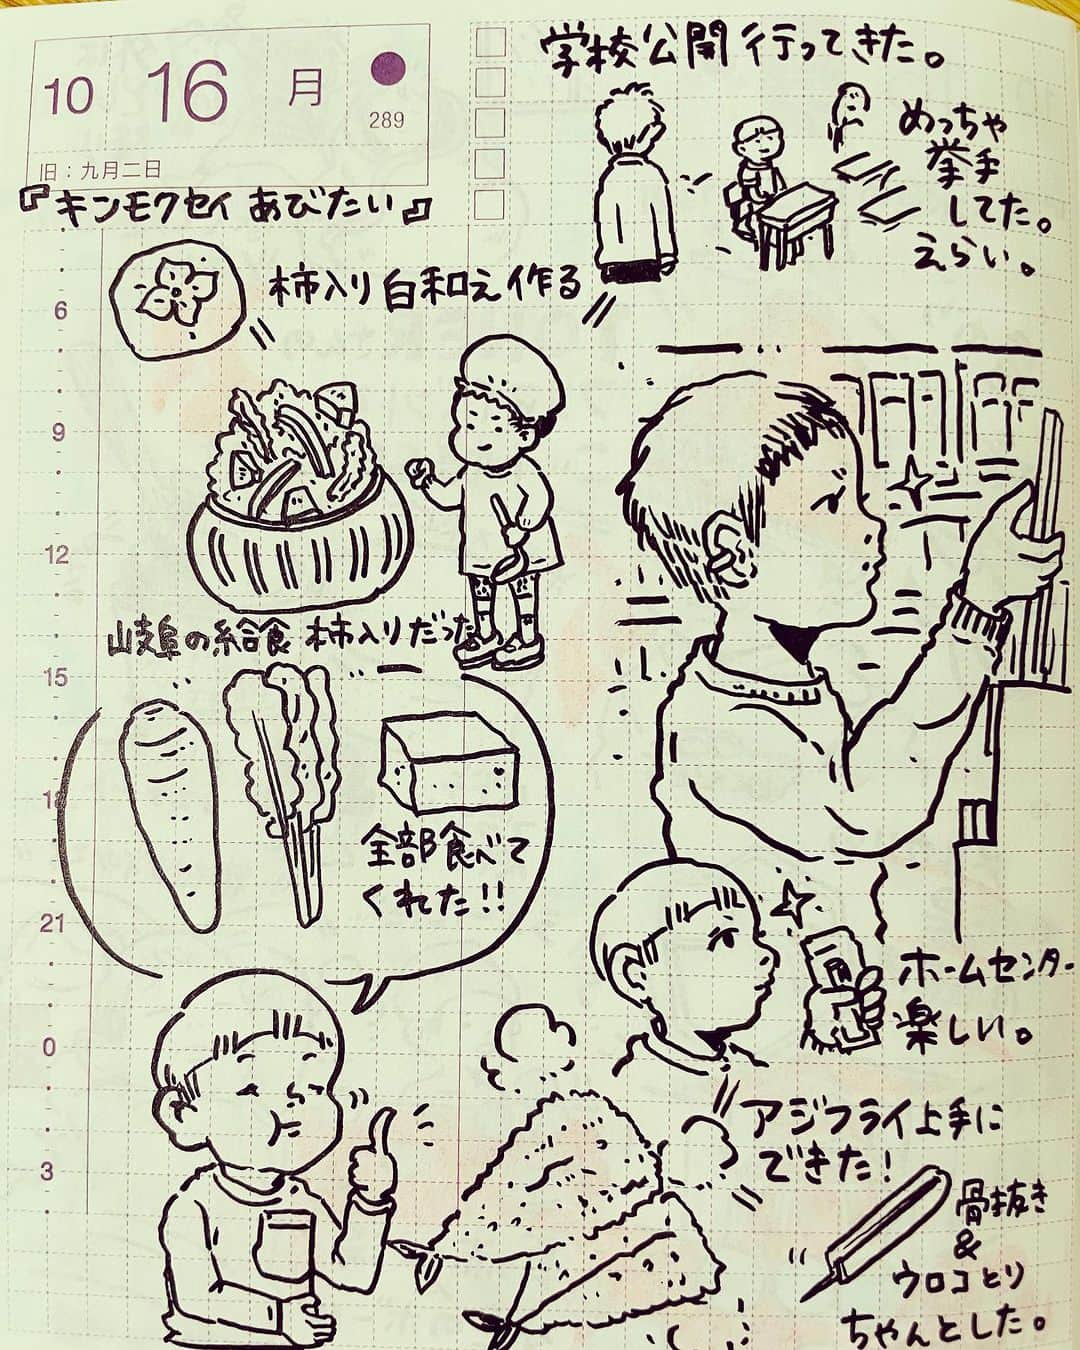 10 16 月
289
旧：九月二日
『キンモクセイ あびたい』
学校公開 行ってきた。
めっちゃ
挙手
してた。
えらい。
柿入り白和え作る
6
9
12
15
18
21
0
3
山岐阜の給食 柿入りだった
全部食べて
くれた!!
ホームセンター
楽しい。
アジフライ上手に
できた!
骨抜き
&
ウロコとり
ちゃんとした。